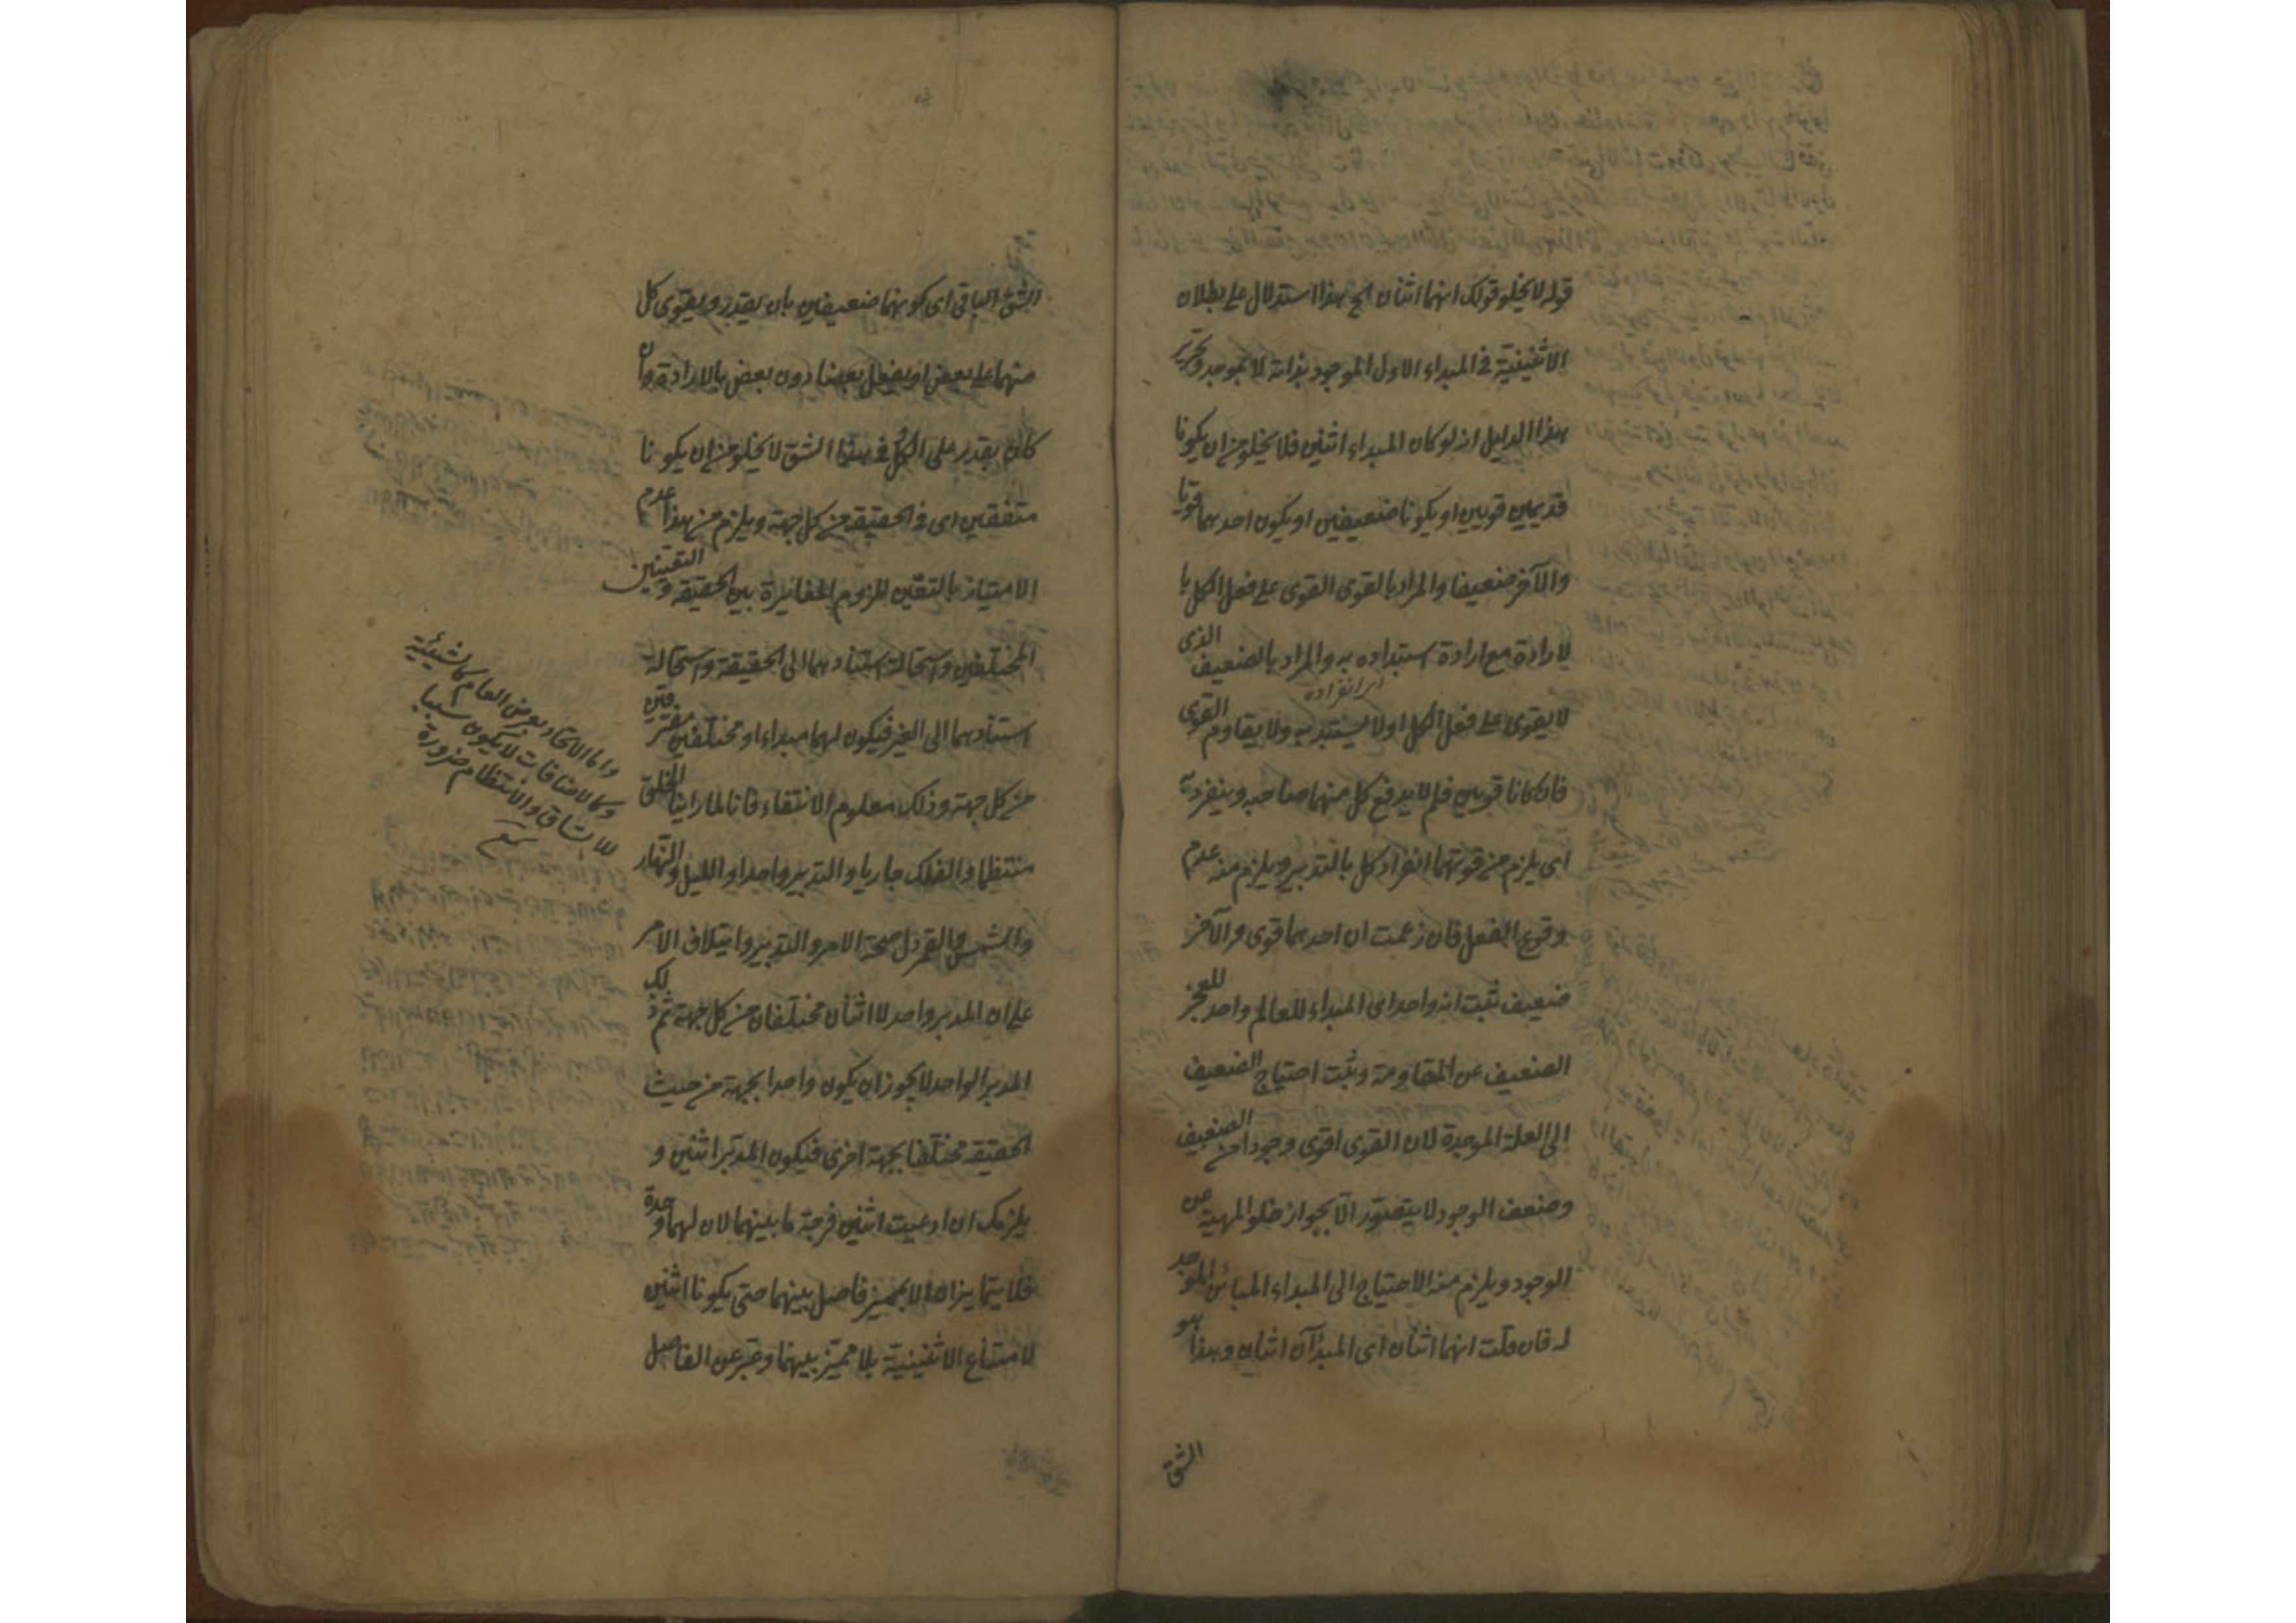 قوله لا يخلو قولك انهما اثنان الخ هذا استدلال على بطلان
الاثنينية في المبداء الاول الموجود بذاته لا بموجد وتحرير
هذا الدليل انه لو كان المبداء اثنين فلا يخلو من ان يكونا
قديمين قويين او يكونا ضعيفين او يكون احدهما قويا
والآخر ضعيفا والمراد بالقوى القوى على فعل الكل با
لارادة مع ارادة استبداده به والمراد بالضعيف الذى
لا يقوى على فعل الكل او لا يستبد به ولا يقاوم القوى
اى انفراده
فان كانا قويين فلم لا يدفع كل منهما صاحبه وينفرد به
اى يلزم من قوتهما انفراد كل بالتدبير ويلزم منه عدم
وقوع الفعل فان زعمت ان احدهما قوى والآخر
ضعيف ثبت انه واحد اى المبداء للعالم واحد للعجز
الضعيف عن المقاومة وثبت احتياج الضعيف
الى العلة الموجدة لان القوى اقوى وجودا من الضعيف
وضعف الوجود لا يتصور الا بجواز خلو المهية عن
الوجود ويلزم منه الاحتياج الى المبداء المباين الموجد
له فان قلت انهما اثنان اى المبدآن اثنان وهذا هو
الشق
الشق الباقى اى كونهما ضعيفين بان يقدر ويقوى كل
منهما على بعض او يفعل بعضا دون بعض بالارادة وان
كان يقدر على الكل وفى هذا الشق لا يخلو من ان يكونا
متفقين اى فى الحقيقة من كل جهة ويلزم من هذا عدم
الامتياز بالتعين للزوم المغايرة بين الحقيقة والتعينين
المختلفين واستحالة استنادهما الى الحقيقة واستحالة
استنادهما الى الغير فيكون لهما مبداء او مختلفين مفترقين
من كل جهة وذلك معلوم الانتفاء فانا لما راينا الخلق
منتظما والفلك جاريا والتدبير واحدا والليل والنهار
والشمس والقمر دل صحة الامر والتدبير وايتلاف الامر
على ان المدبر واحد لا اثنان مختلفان من كل جهة ثم ذلك
المدبر الواحد لا يجوز ان يكون واحدا بجهة من حيث
الحقيقة مختلفا بجهة اخرى فيكون المدبر اثنين و
يلزمك ان ادعيت اثنين فرجة ما بينهما لان لهما وحدة
فلا يتمايزان الا بمميز فاصل بينهما حتى يكونا اثنين
لامتناع الاثنينية بلا مميز بينهما وعبر عن الفاصل
واما الاتحاد بعرض العام كالشيئية
وكالاضافات لا يكون سببا
للاتساق والانتظام ضرورة